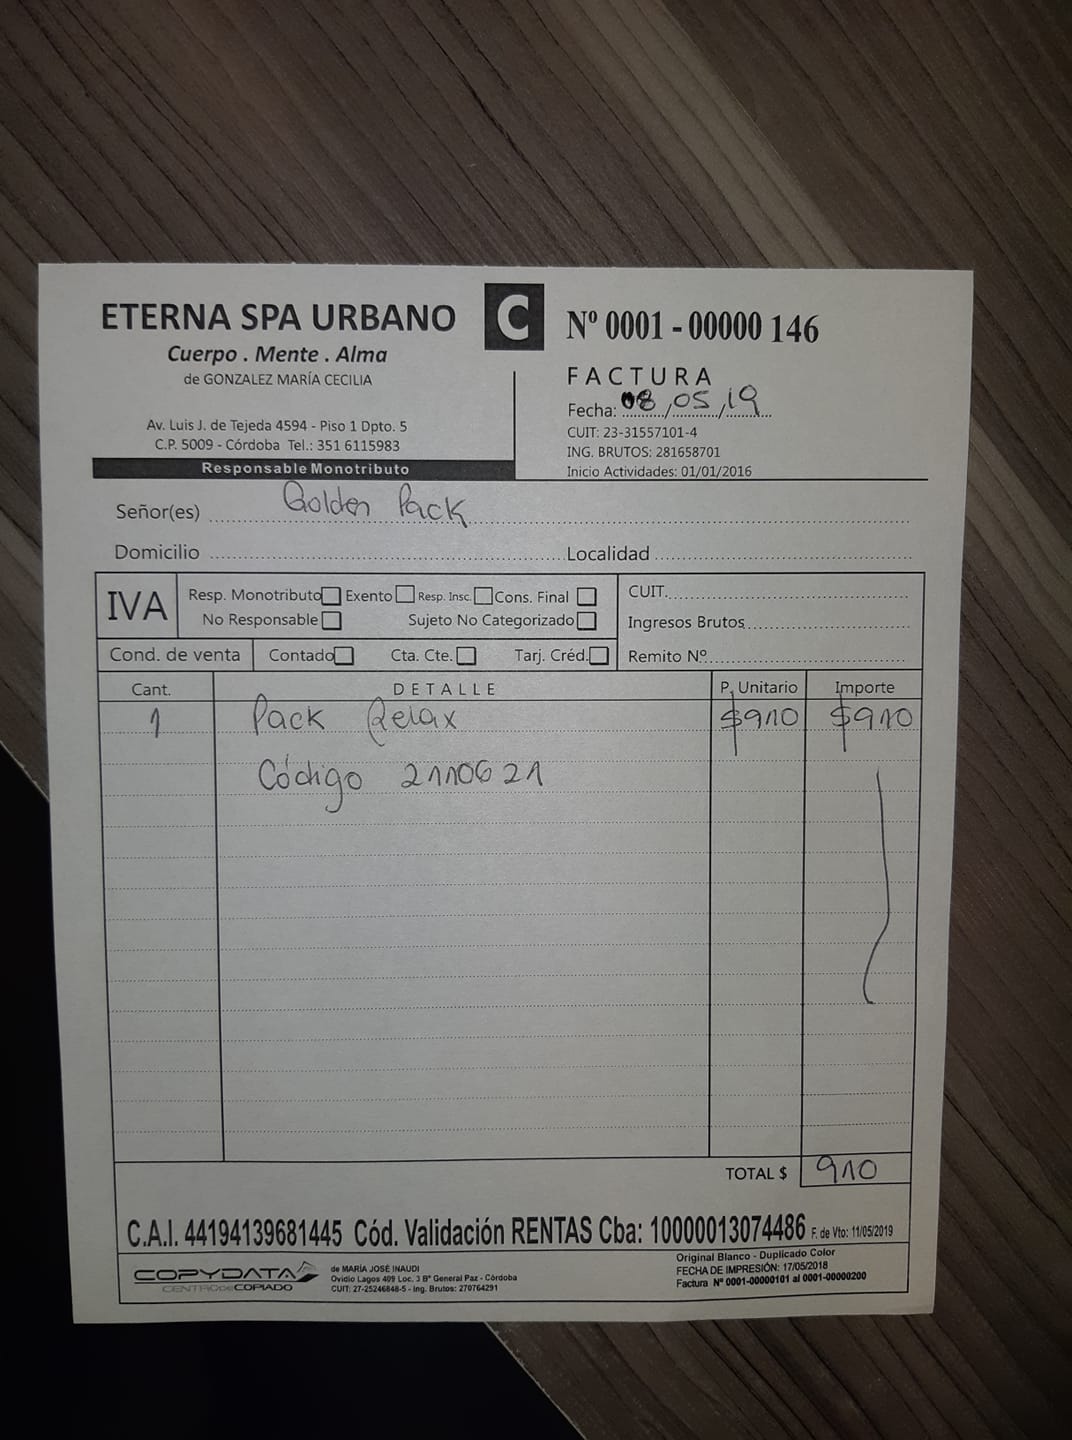 ETERNA SPA URBANO
Cuerpo . Mente . Alma
de GONZALEZ MARÍA CECILIA
Av. Luis J. de Tejeda 4594 - Piso 1 Dpto. 5
C.P. 5009 - Córdoba Tel.: 351 6115983
Responsable Monotributo
C
Nº 0001 - 00000 146
FACTURA
Fecha: 08/05/19
CUIT: 23-31557101-4
ING. BRUTOS: 281658701
Inicio Actividades: 01/01/2016
Señor(es) Golden Pack
Domicilio Localidad
IVA Resp. Monotributo Exento Resp. Insc. Cons. Final
No Responsable Sujeto No Categorizado
CUIT.
Ingresos Brutos
Cond. de venta Contado Cta. Cte. Tarj. Créd. Remito Nº
Cant. DETALLE P. Unitario Importe
1 Pack Relax $910 $910
Código 2110621
TOTAL $ 910
C.A.I. 44194139681445 Cód. Validación RENTAS Cba: 10000013074486 F. de Vto: 11/05/2019
COPYDATA
CENTRO de COPIADO
de MARÍA JOSÉ INAUDI
Ovidio Lagos 409 Loc. 3 Bº General Paz - Córdoba
CUIT: 27-25246848-5 - Ing. Brutos: 270764291
Original Blanco - Duplicado Color
FECHA DE IMPRESIÓN: 17/05/2018
Factura Nº 0001-00000101 al 0001-00000200